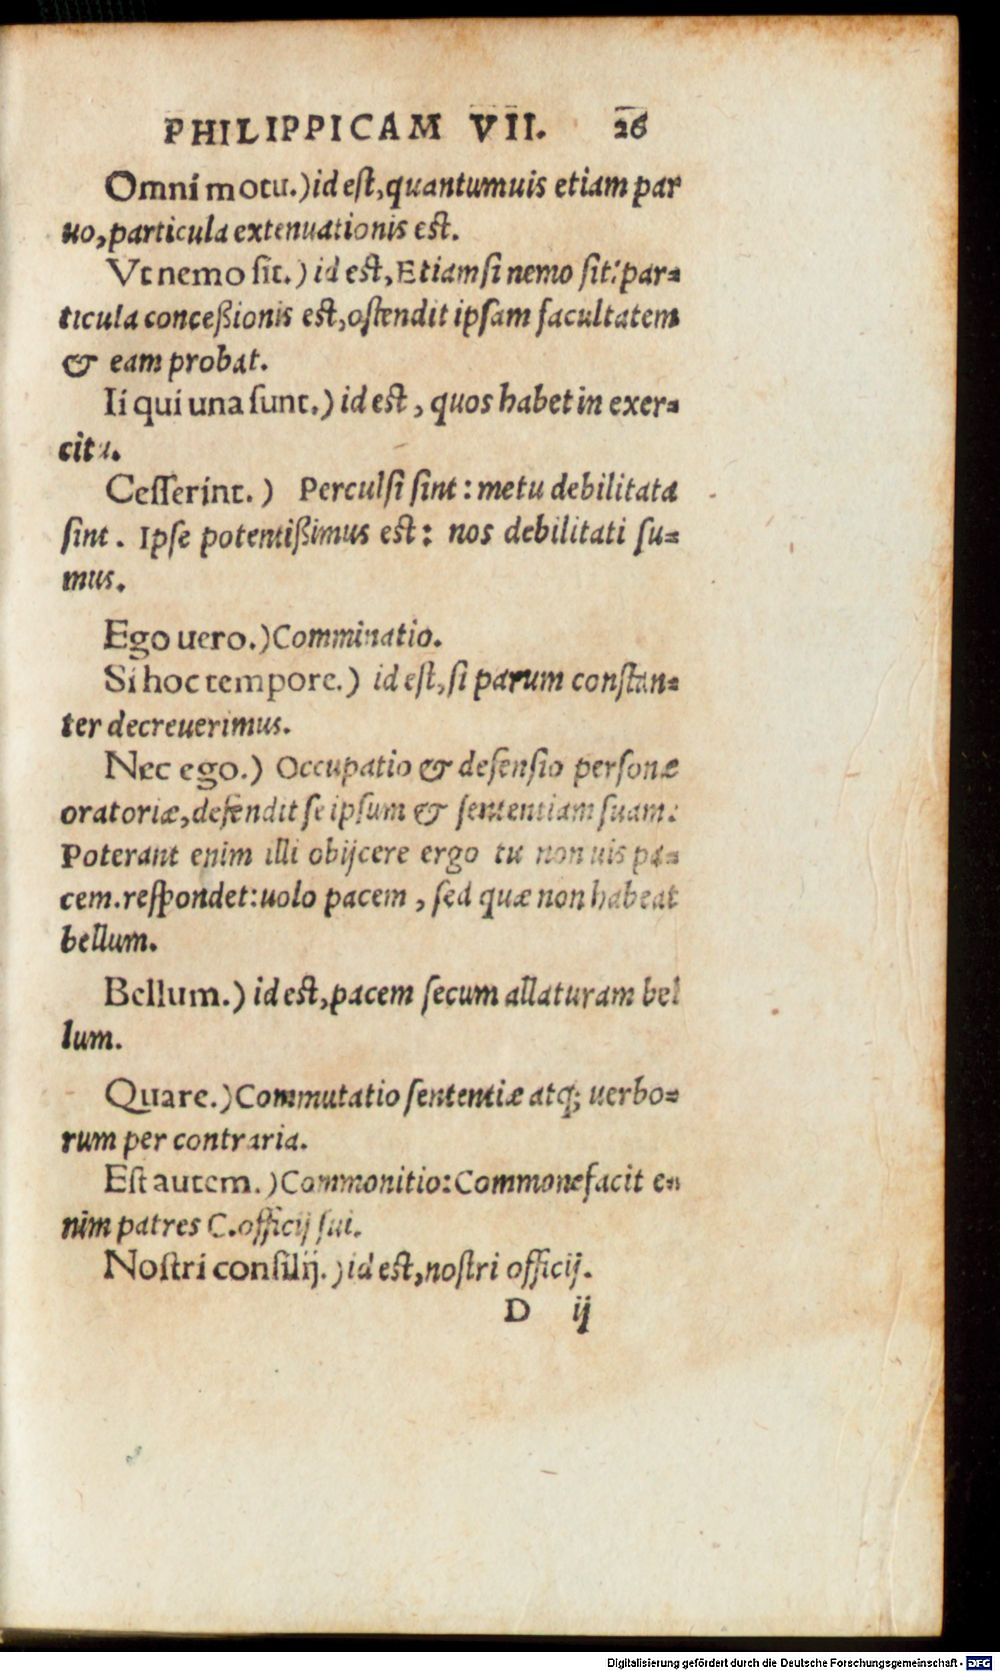 PHILIPPICAM VII. 26
Omni motu.) id eſt, quantumuis etiam par
uo, particula extenuationis eſt.
Vt nemo ſit.) id eſt, Etiam ſi nemo ſit: par-
ticula conceßionis eſt, oſtendit ipſam facultatem
& eam probat.
Ii qui una ſunt.) id eſt, quos habet in exer-
citu.
Ceſſerint.) Perculſi ſint: metu debilitata
ſint. Ipſe potentißimus eſt: nos debilitati ſu-
mus.
Ego uero.) Comminatio.
Si hoc tempore.) id eſt, ſi parum conſtan-
ter decreuerimus.
Nec ego.) Occupatio & defenſio perſonæ
oratoriæ, defendit ſe ipſum & ſententiam ſuam:
Poterant enim illi obijcere ergo tu non uis pa-
cem. reſpondet: uolo pacem, ſed quæ non habeat
bellum.
Bellum.) id eſt, pacem ſecum allaturam bel
lum.
Quare.) Commutatio ſententiæ atq; uerbo-
rum per contraria.
Eſt autem.) Commonitio: Commonefacit e-
nim patres C. officij ſui.
Noſtri conſilij.) id eſt, noſtri officij.
D ij
Digitalisierung gefördert durch die Deutsche Forschungsgemeinschaft - DFG